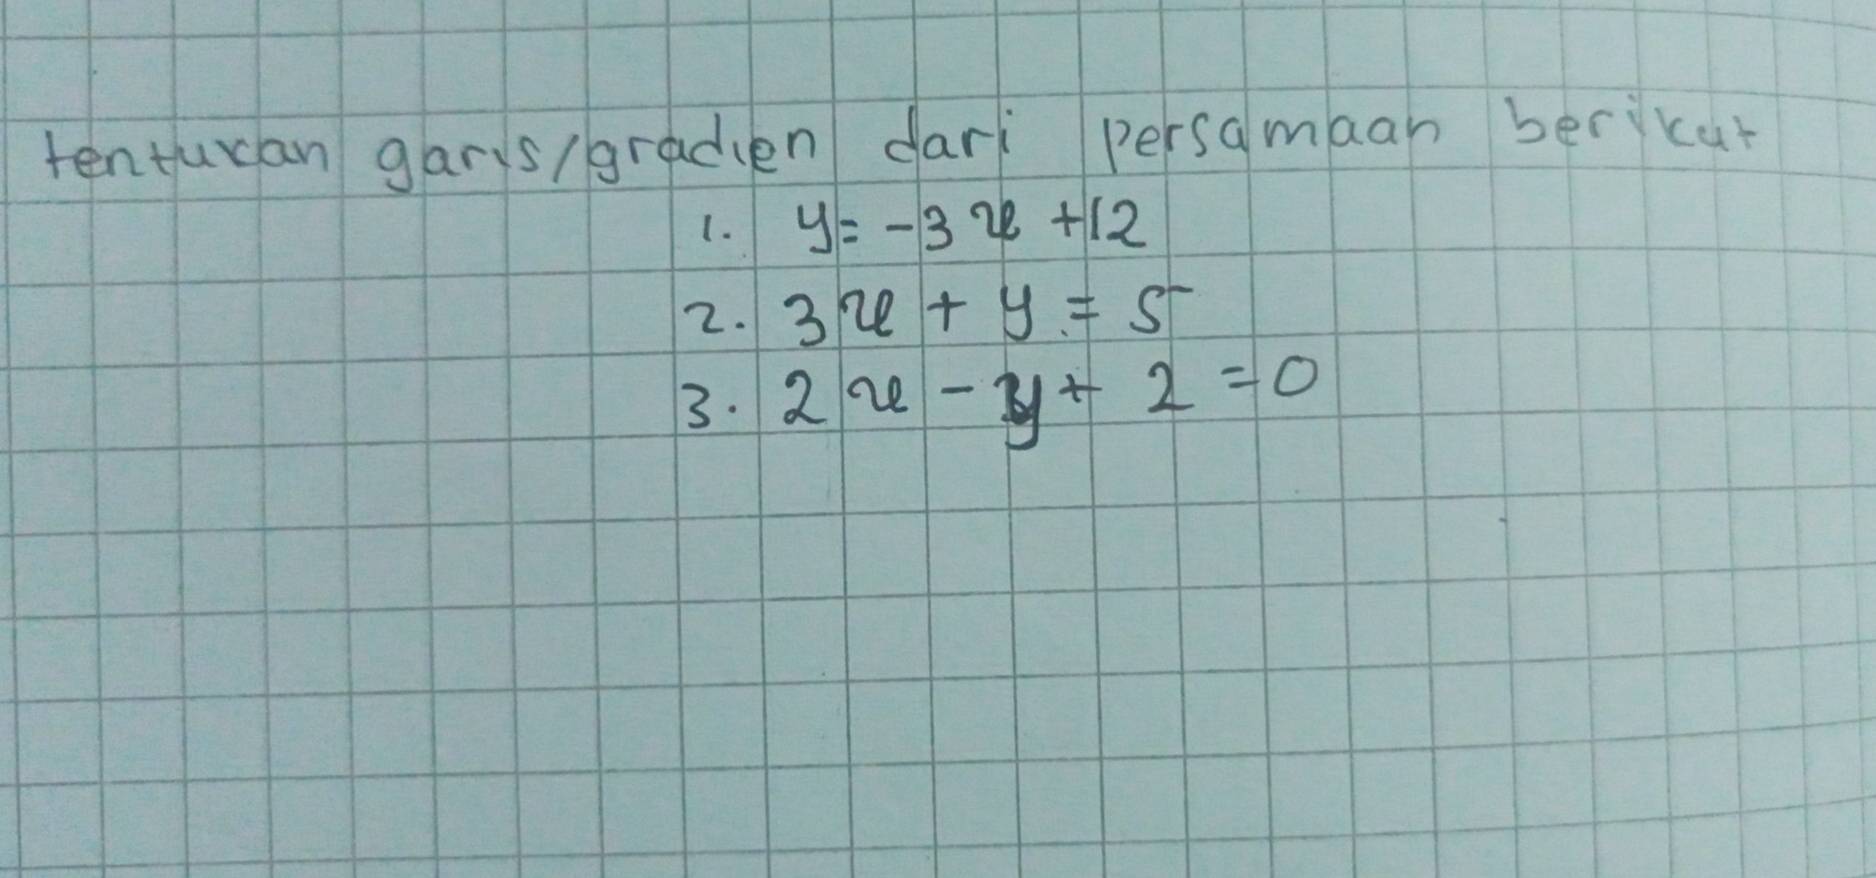 tentukan garis/gradien dari persamaan berikut
1. y = -3x + 12
2. 3x + y = 5
3. 2x - y + 2 = 0